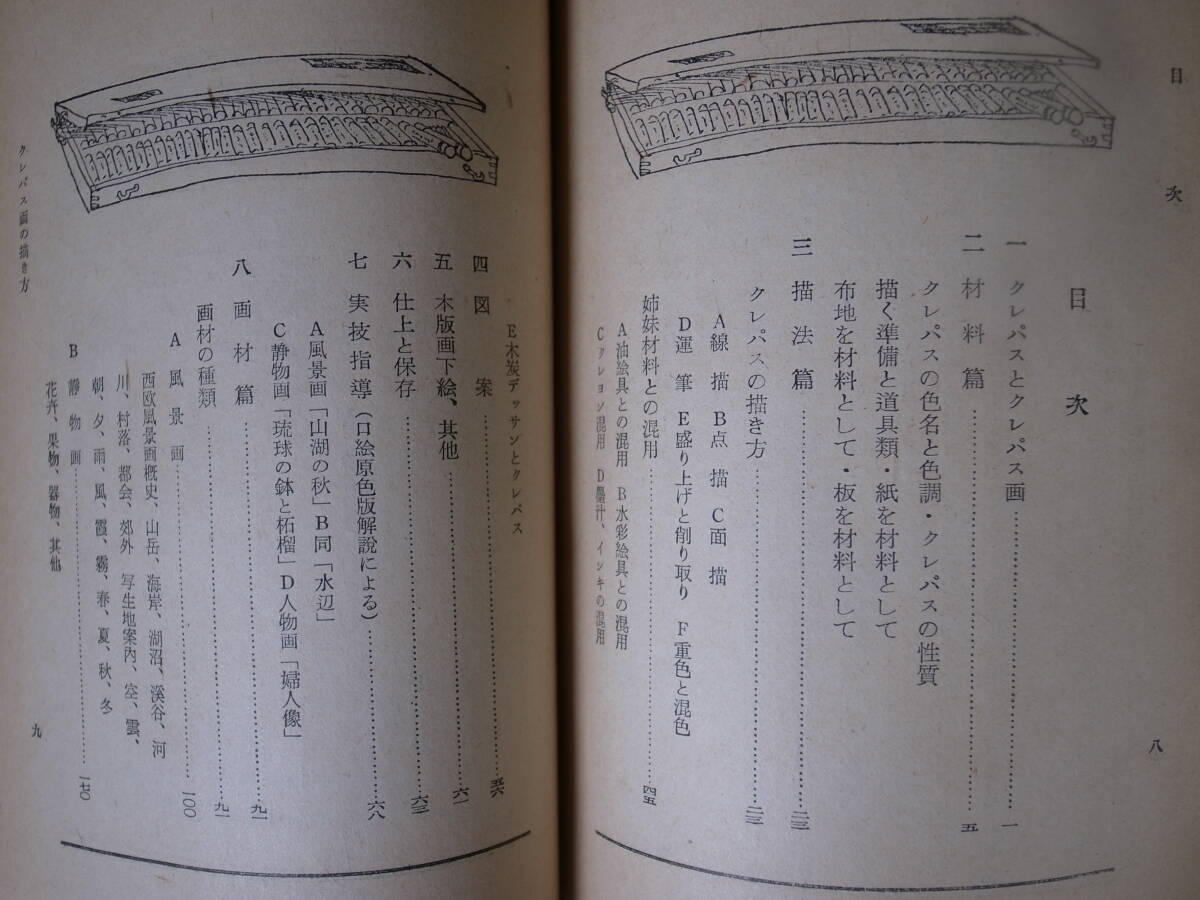 目次
八
目次
一 クレパスとクレパス画……………一
二 材料篇……………五
クレパスの色名と色調・クレパスの性質
描く準備と道具類・紙を材料として
布地を材料として・板を材料として
三 描法篇……………二三
クレパスの描き方……………二三
A線描 B点描 C面描
D運筆 E盛り上げと削り取り F重色と混色
姉妹材料との混用……………四五
A油絵具との混用 B水彩絵具との混用
Cクレヨン混用 D墨汁、インキの混用
E木炭デッサンとクレパス
四 図案……………五六
五 木版画下絵、其他……………六一
六 仕上と保存……………六三
七 実技指導(口絵原色版解説による)……………六八
A風景画「山湖の秋」B同「水辺」
C静物画「琉球の鉢と柘榴」D人物画「婦人像」
八 画材篇……………九一
画材の種類……………九一
A 風景画……………一〇〇
西欧風景画概史、山岳、海岸、湖沼、溪谷、河
川、村落、都会、郊外 写生地案内、空、雲、
朝、夕、雨、風、霞、霧、春、夏、秋、冬
B 静物画……………一七〇
花卉、果物、器物、其他
クレパス画の描き方
九